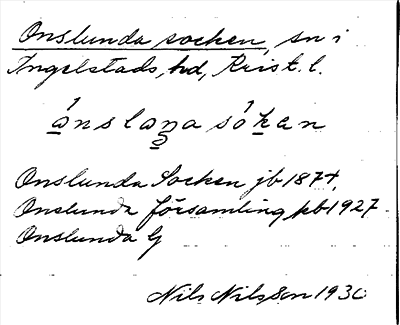 Onslunda socken, sn i
Ingelstads, hd, Krist. l.
ánslaŋa sókan
Onslunda Socken jb 1874,
Onslunda församling kb 1927
Onslunda G
Nils Nilsson 1930